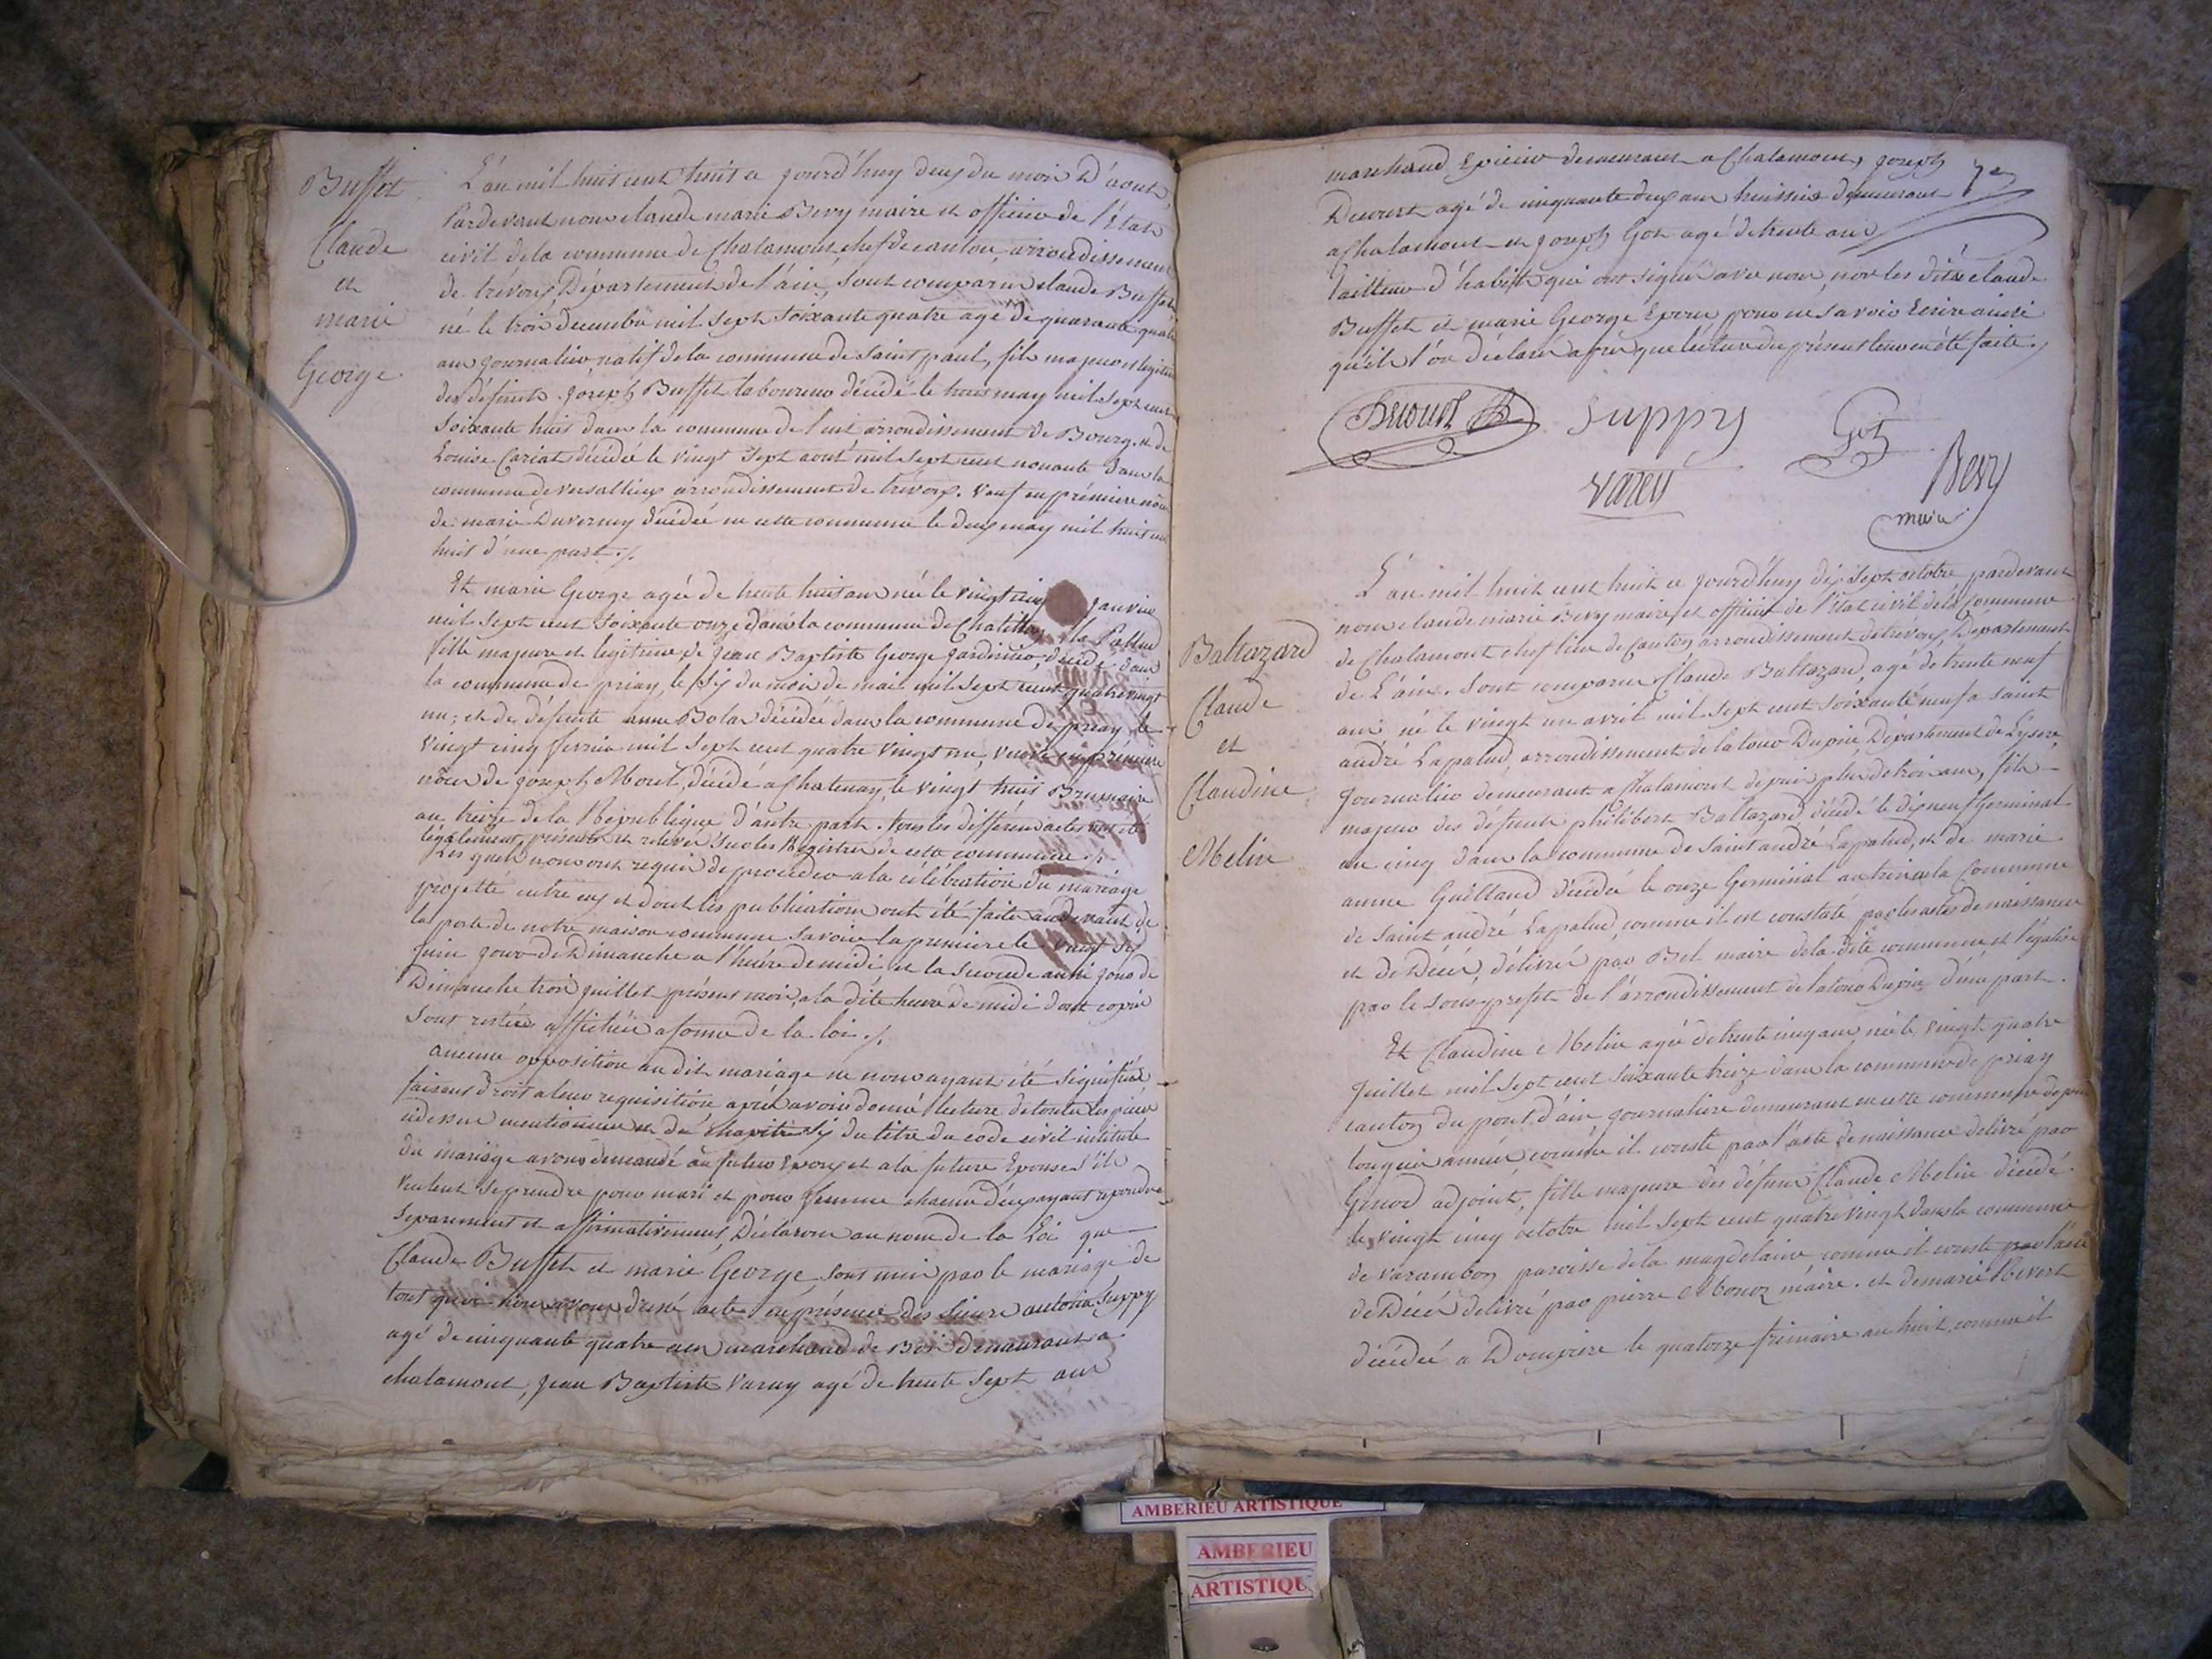 Buffet
Claude
et
marie
George
L'an mil huit cent huit a jourd'huy deux du mois D'aout
Pardevant nous claude marie Bevy maire et officier de l'Etat
civil dela commune de Chalamont chef de canton arrondissement
de trévoux, Département de l'ain, sont comparu claude Buffet
né le trois decembre mil sept soixante quatre agé de quarante quatre
ans journalier, natif de la commune de saint paul, fils majeur et legitime
des défunts joseph Buffet laboureur décédé le huit may mil sept cent
soixante huit dans la commune de l'ent arrondissement de Bourg. et de
Louise Cariat décédée le vingt sept aout mil sept cent nonante dans la
commune de versallieux arrondissement de trévoux. veuf en prémiere nôce
de marie Duverney décédée en cette commune le deux may mil huit cent
huit d'une part ./.
Et marie George agée de trente huit ans née le vingt cinq janvier
mil sept cent soixante onze dans la commune de Chatillon la Pallud
fille majeure et legitime de Jean Baptiste George jardinier, décédé dans
la commune de priay, le six du mois de mai mil sept cent quatre vingt
un; et de défunte anne Bolas décédée dans la commune de priay le
vingt cinq fevrier mil sept cent quatre vingt un, veuve en prémiere
nôce de joseph Morel, décédé a chatenay, le vingt huit Brumaire
an treize de la République d'autre part. tous les différens actes ont été
légalement présentés et relevés sur les Registres de cette commune ./.
Les quels nous ont requis de proceder a la célébration du mariage
projetté entre eux et dont les publications ont été faites au devant de
la porte de notre maison commune savoir la premiere le vingt six
juin jour de Dimanche a l'heure de midi et la seconde aussi jour de
Dimanche trois juillet présent mois, a la dite heure de midi dont copie
sont restées affichées a forme de la loi ./.
aucune opposition au dit mariage ne nous ayant été signifiée
faisant droit a leur requisition après avoir donné lecture de toutes les pièces
cidessus mentionnées et du chapitre six du titre du code civil intitulé
du mariage avons demandé au futur Epoux et a la future Epouse s'ils
veulent se prendre pour mari et pour femme chacun d'eux ayant repondu
separement et affirmativement, Déclarons au nom de la Loi que
Claude Buffet et marie George sont unis par le mariage de
tout quoi nous avons dressé acte en présence des sieurs antoine Suppy
agé de cinquante quatre ans marchand de Bois demeurant a
chalamont, jean Baptiste Varey agé de trente sept ans
marchand Epicier demeurant a Chalamont, joseph
Ducurt agé de cinquante deux ans huissier demeurant
a Chalamont et joseph Got agé de trente ans
tailleur d'habit qui ont signé avec nous, non les dits claude
Buffet et marie George Epoux pour ne savoir Ecrire ainsi
qu'il l'on déclaré après que lecture du présent leur en été faite.
Suppy
Got
varey
Bevy
maire
Baltazard
Claude
et
Claudine
Melin
L'an mil huit cent huit a jourd'huy dix sept octobre pardevant
nous claude marie Bevy maire et officier de l'état civil dela Commune
de Chalamont chef lieu de Canton, arrondissement de trévoux, Département
de L'ain. sont comparu Claude Baltazard, agé de trente neuf
ans né le vingt un avril mil sept cent soixante neuf a saint
andré Lapalud, arrondissement de la tour Dupin, Département de L'ysere
journalier demeurant a chalamont depuis plus de trois ans, fils
majeur des defunts philibert Baltazard décédé le dix neuf Germinal
an cinq dans la commune de saint andré Lapalud, et de marie
anne Guilland décédée le onze Germinal an trois a la Commune
de saint andré Lapalud, comme il est constaté par les actes de naissance
et de Décès, délivrés par Bel maire dela dite commune et légalisé
par le sous-prefet de l'arrondissement de latour Dupin, d'une part.
Et Claudine Melin agée de trente cinq ans née le vingt quatre
juillet mil sept cent soixante treize dans la commune de priay
canton du pont d'ain, journaliere demeurant en cette commune depuis
longues années comme il conste par l'acte de naissance délivré par
Genod adjoint, fille majeure des défunts Claude Melin décédé
le vingt cinq octobre mil sept cent quatre vingt dans la commune
de varambon paroisse de la magdelaine comme il conste par l'acte
de Décès délivré par pierre Monoz maire. et de marie Thevent
décédée a Dompiere le quatorze frimaire an huit, comme il
AMBERIEU ARTISTIQUE
AMBERIEU
ARTISTIQU